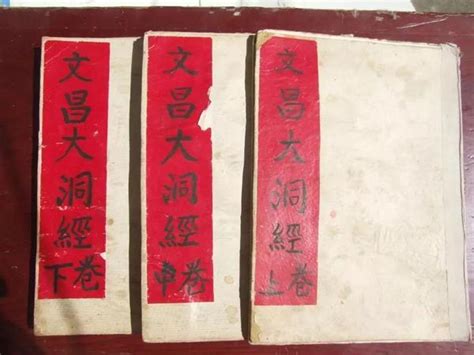 文昌大洞經
上卷
文昌大洞經
中卷
文昌大洞經
下卷